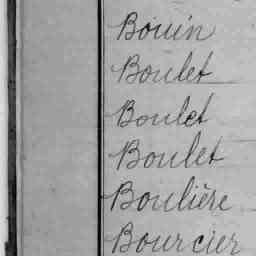 Bouin
Boulet
Boulet
Boulet
Boulière
Bourcier